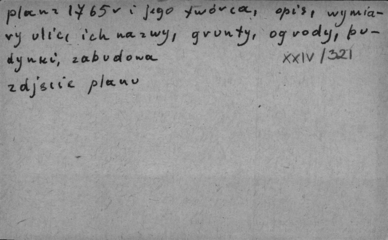 plan z 1765r i jego twórca, opis, wymia-
ry ulic, ich nazwy, grunty, ogrody, bu-
dynki, zabudowa
XXIV/321
zdjęcie planu